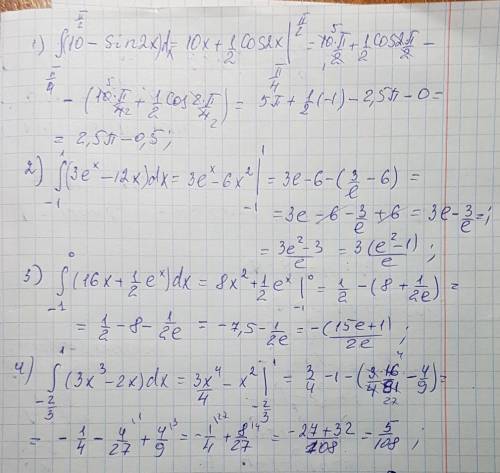 1) ∫_{π/4}^{π/2} (10 - Sin2x)dx = 10x + 1/2 Cos2x |_{π/4}^{π/2} = 10·π/2 + 1/2 Cos2π/2 -
- (10·π/4 + 1/2 Cos2π/4) = 5π + 1/2(-1) - 2,5π - 0 =
= 2,5π - 0,5;
2) ∫_{-1}^{1} (3e^x - 12x)dx = 3e^x - 6x^2 |_{-1}^{1} = 3e - 6 - (3/e - 6) =
= 3e - 6 - 3/e + 6 = 3e - 3/e =
= (3e^2 - 3)/e = 3(e^2 - 1)/e;
3) ∫_{-1}^{0} (16x + 1/2 e^x)dx = 8x^2 + 1/2 e^x |_{-1}^{0} = 1/2 - (8 + 1/2e) =
= 1/2 - 8 - 1/2e = -7,5 - 1/2e = -(15e+1)/2e;
4) ∫_{-2/3}^{1} (3x^3 - 2x)dx = 3x^4/4 - x^2 |_{-2/3}^{1} = 3/4 - 1 - (3·16/4·81 - 4/9) =
= -1/4 - 4/27 + 4/9 = -1/4 + 8/27 = (-27+32)/108 = 5/108;